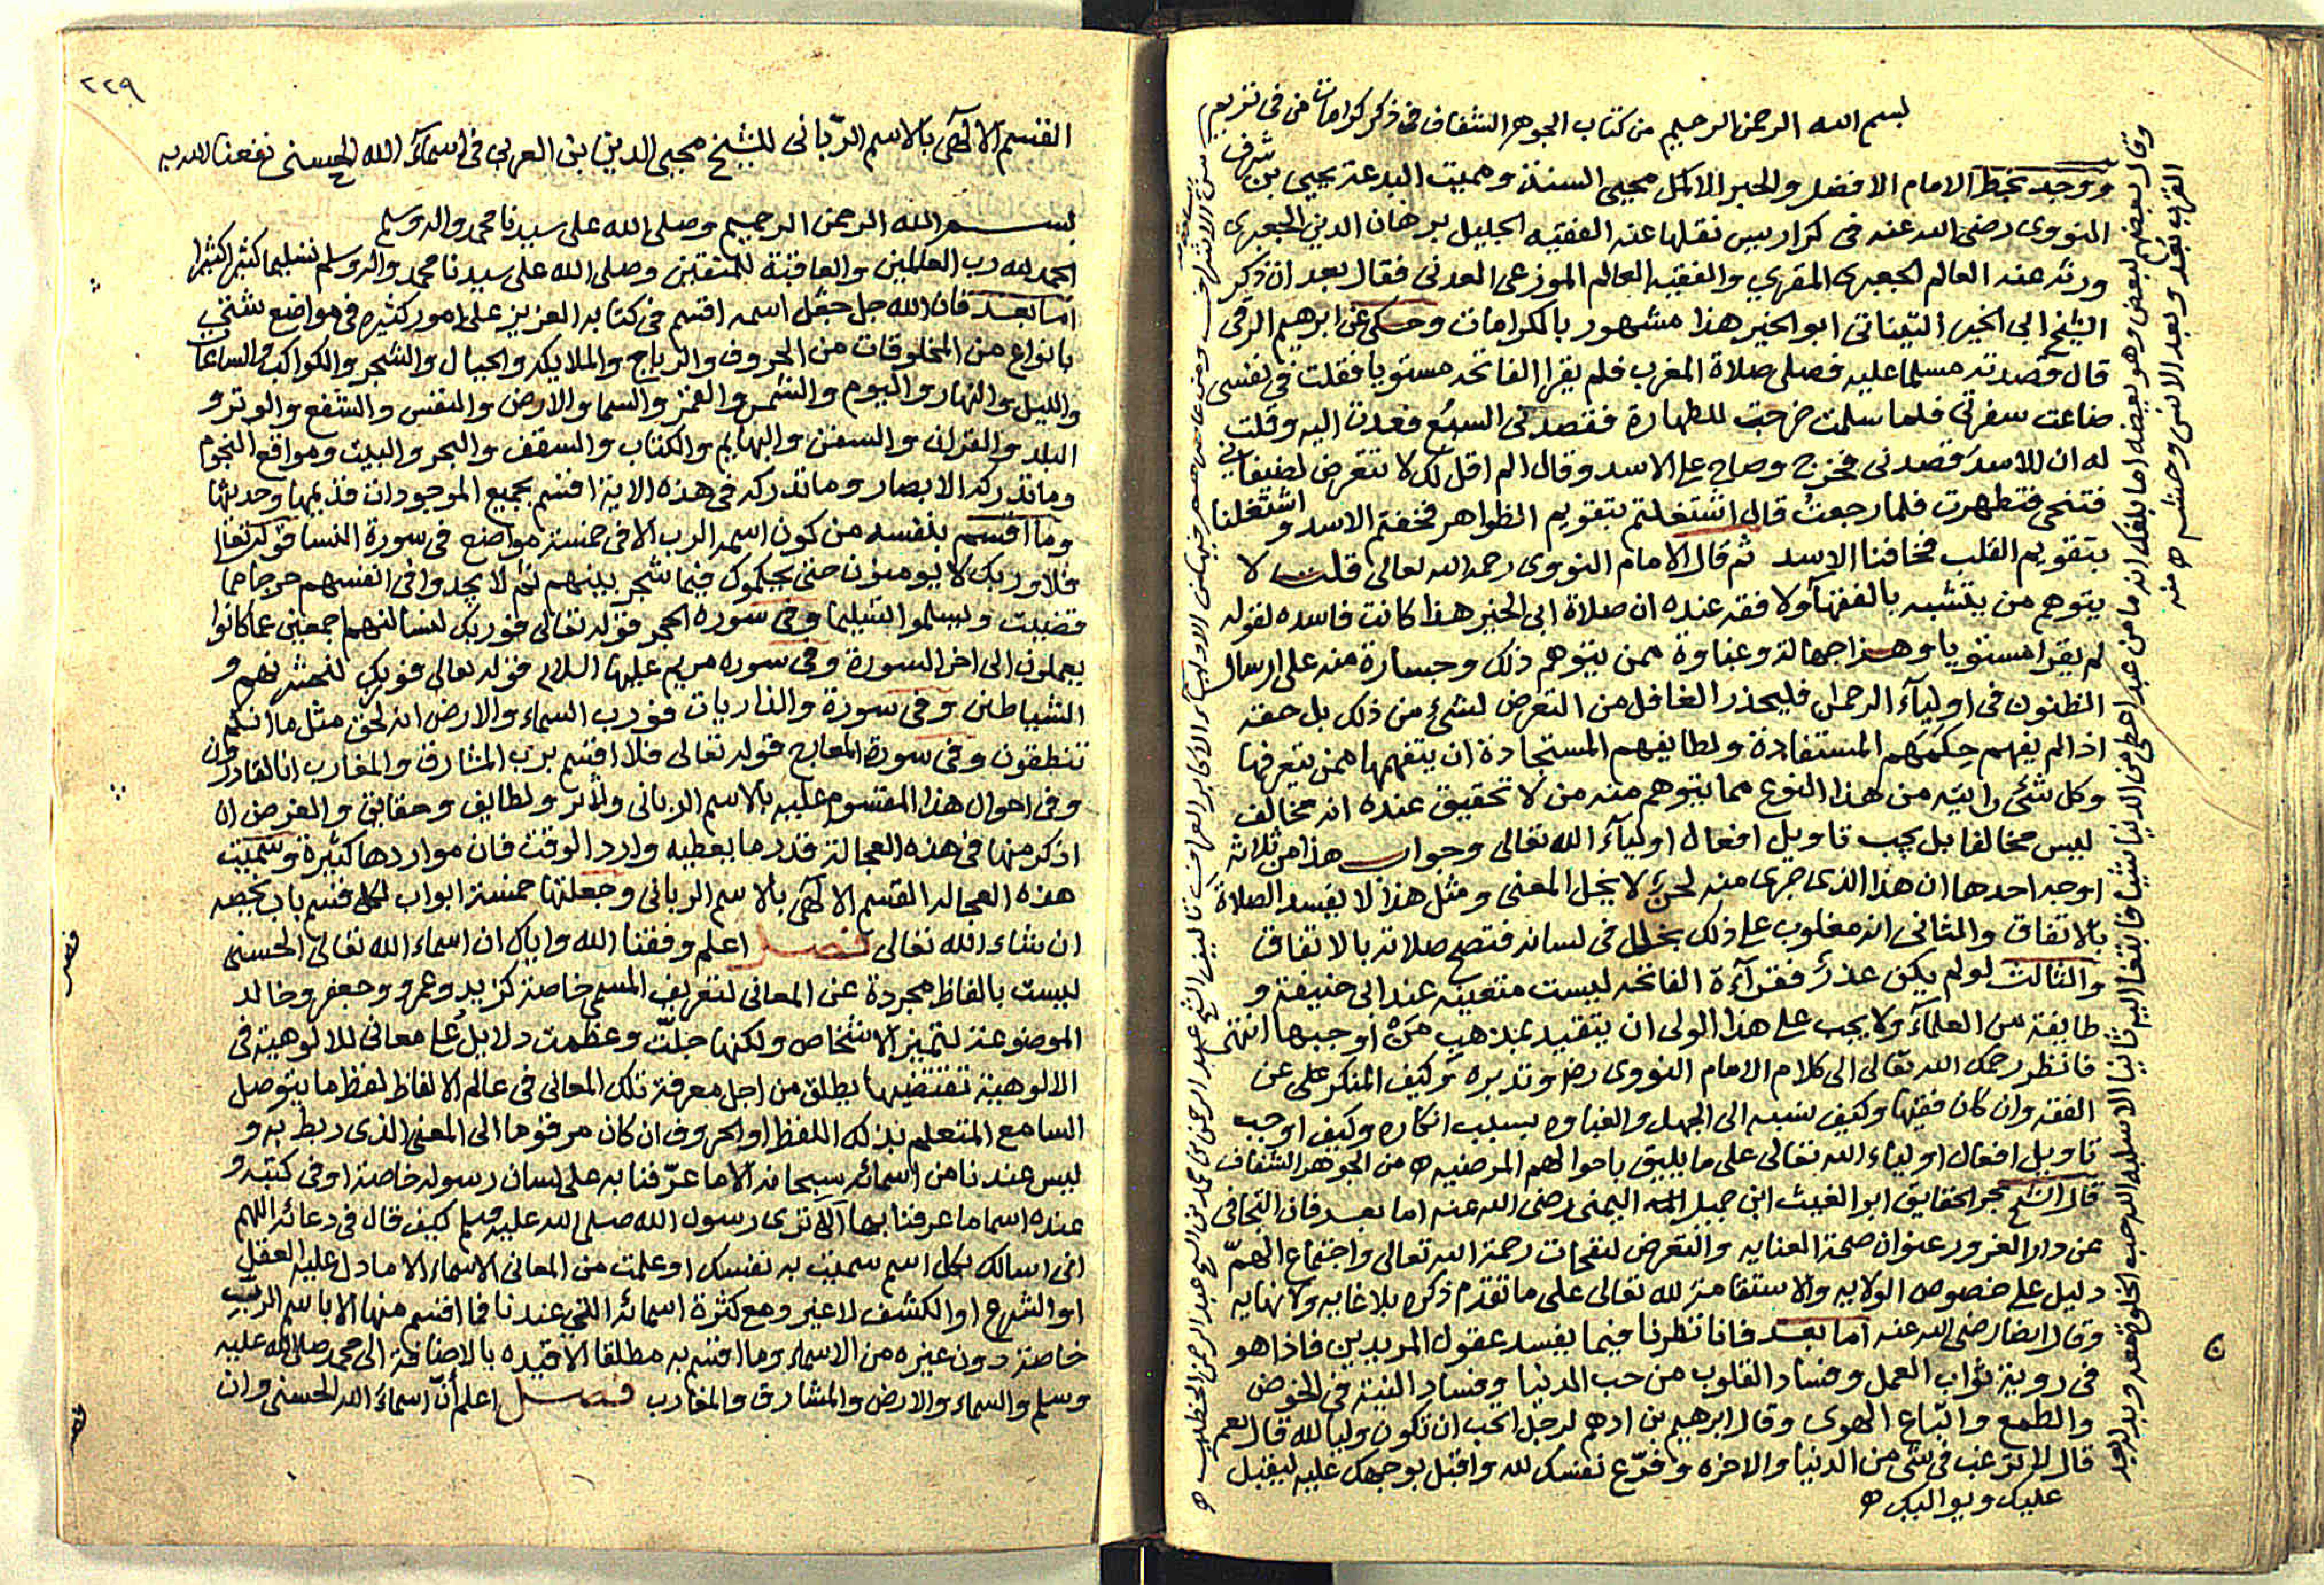 بسم الله الرحمن الرحيم من كتاب الجوهر الشفاف في ذكر كرامات من في تريم
ووجد بخط الامام الافضل والحبر الاكمل محيي السنة ومميت البدعة يحيى بن شرف
النووي رضى الله عنه في كراريس نقلها عنه الفقيه الجليل برهان الدين الجعبري
ورته عنه العالم الجعبرى المقري والفقيه العالم الموزعى العدنى فقال بعد ان ذكر
الشيخ ابى الخير التيناتي ابو الخير هذا مشهور بالكرامات وحكى عن ابرهيم الرقى
قال قصدته مسلما عليه فصلى صلاة المغرب فلم يقرا الفاتحه مستويا فقلت في نفسى
ضاعت سفرتي فلما سلمت خرجت للطهارة فقصدنى السبُع فعدت اليه وقلت
له ان الاسد قصدنى فخرج وصاح على الاسد وقال الم اقل لك لا تتعرض لضيفاني
فتنحى فتطهرت فلما رجعتُ قال اشتغلتم بتقويم الظواهر فخفتم الاسد واشتغلنا
بتقويم القلب فخافنا الاسد ثم قال الامام النووى رحمه الله تعالى قلت لا
يتوهم من يتشبه بالفقهآ ولا فقه عنده ان صلاة ابى الخير هذا كانت فاسده لقوله
لم يقرا مستويا وهذا جهالة وغباوة ممن يتوهم ذلك وجسارة منه على ارسال
الظنون فى اوليآء الرحمان فليحذر الغافل من التعرض لشئ من ذلك بل حقه
اذا لم يفهم حِكَمَهم المستفادة ولطايفهم المستجادة ان يتفهمها ممن يتعرفها
وكل شئ رايته من هذا النوع مما يتوهم منه من لا تحقيق عنده انه مخالف
ليس مخالفا بل يجب تاويل افعال اوليآء الله تعالى وجواب هذا من ثلاثة
اوجه احدها ان هذا الذى جرى منه لحن لا يخل المعنى ومثل هذا لا يفسد الصلاة
بالاتفاق والثانى انه مغلوب على ذلك بخلل فى لسانه فتصح صلاته بالاتفاق
والثالث لو لم يكن عذرٌ فقرآءة الفاتحه ليست متعينه عند ابى حنيفة و
طايفة من العلمآء ولا يجب على هذا الولى ان يتقيد بمذهب مَنْ اوجبها انتهى
فانظر رحمك الله تعالى الى كلام الامام النووى رض وتدبره وكيف المنكر على عن
الفقه وان كان فقيها وكيف نسبه الى الجهل والغباوه بسبب انكاره وكيف اوجب
تاويل افعال اولياء الله تعالى على ما يليق باحوالهم المرضيه ه من الجوهر الشفاف
قال الشيخ بحر الحقايق ابو الغيث ابن جميل اليمنى رضى الله عنه اما بعد فان التجافى
عن دار الغرور عنوان صحة العنايه والتعرض لنفحات رحمة الله تعالى واجتماع الهمّ
دليل على خصوص الولايه والاستقامة لله تعالى على ما تقدم ذكره بلا غايه ولا نهايه
وقال ايضا رضى الله عنه اما بعد فانا نظرنا فيما يفسد عقول المريدين فاذا هو
فى روية ثواب العمل وفساد القلوب من حب الدنيا وفساد النية في الخوض
والطمع واتباع الهوى وقال ابرهيم بن ادهم لرجل اتحب ان تكون وليا لله قال نعم
قال لا ترغب فى شئ من الدنيا والاخره وفرّغ نفسك لله واقبل بوجهك عليه ليقبل
عليك ويواليك ه
وقال بعضهم لبعض وهو يعظه اما بلغك انه ما من عبد اعطى من الدنيا شيا فابتغا اليه ثانيا الا سلبه الله حب الخلوة معه وبدله بعد
القرب بعد وبعد الانس وحشه ه منه
٢٢٩
القسم الالٓهى بالاسم الربّانى للشيخ محيى الدين بن العربى فى اسمآء الله الحسنى نفعنا الله به
بسم الله الرحمن الرحيم وصلى الله على سيدنا محمد واله وسلم
الحمد لله رب العالمين والعاقبة للمتقين وصلى الله على سيدنا محمد واله وسلم تسليما كثيرا كثيرا
اما بعد فان الله جل اسمه اقسم فى كتابه العزيز على امور كثيره فى مواضع شتى
بانواع من المخلوقات من الحروف والرياح والملايكه والجبال والشجر والكواكب والساعات
والليل والنهار واليوم والشمس والقمر والسما والارض والنفس والشفع والوتر و
البلد والقران والسفن والبهايم والكتاب والسقف والبحر والبيت ومواقع النجوم
وما تدركه الابصار وما لا تدركه فى هذه الاية اقسم بجميع الموجودات قديمها وحديثها
وما اقسم بنفسه من كون اسمه الرب الا فى خمسة مواضع فى سورة النسا قوله تعالى
فلا وربك لا يومنون حتى يحكموك فيما شجر بينهم ثم لا يجدوا فى انفسهم حرجا مما
قضيت ويسلموا تسليما وفى سوره الحجر قوله تعالى فوربك لنسالنهم اجمعين عما كانوا
يعملون الى اخر السورة وفى سوره مريم عليها السلام قوله تعالى فوربك لنحشرنهم و
الشياطين وفى سورة والذاريات فورب السماء والارض انه لحق مثل ما انكم
تنطقون وفى سورة المعارج قوله تعالى فلا اقسم برب المشارق والمغارب انا لقادرون
وفى احوال هذا المقسوم عليه بالاسم الربانى ولطايف وحقايق والغرض ان
اذكر منها فى هذه العجالة قدر ما يعطيه وارد الوقت فان مواردها كثيرة وسميت
هذه العجاله القسم الالٓهى بالاسم الربانى وجعلتها خمسة ابواب لكل قسم باب يخصه
ان شاء الله تعالى فصل اعلم وفقنا الله واياك ان اسماء الله تعالى الحسنى
ليست بالفاظ مجردة عن المعانى لتعريف المسمى خاصة كزيد وعمرو وجعفر وخالد
الموضوعة لتمييز الاشخاص ولكنها جلّت وعظمت دلايل على معانى للالوهية فى
الالوهية تقتضيها يطلق من اجل معرفة تلك المعانى فى عالم الالفاظ لفظ ما يتوصل
السامع المتعلم بذلك اللفظ او الحروف ان كان مرقوما الى المعنى الذى ربط به و
ليس عندنا من اسمائه سبحانه الا ما عرّفنا به على لسان رسوله خاصة او فى كتبه و
عنده اسما ما عرفنا بها الا ترى رسول الله صلى الله عليه وسلم كيف قال فى دعائه اللهم
انى اسالك بكل اسم سميت به نفسك او علمت من المعانى الاسماء الا ما دل عليه العقل
او الشرع او الكشف لا غير ومع كثرة اسمائه التى عندنا فما اقسم منها الا باسم الرب
خاصة دون غيره من الاسماء وما اقسم به مطلقا الا قيده بالاضافة الى محمد صلى الله عليه
وسلم والسماء والارض والمشارق والمغارب فصل اعلم أنّ اسماء الله الحسنى وان